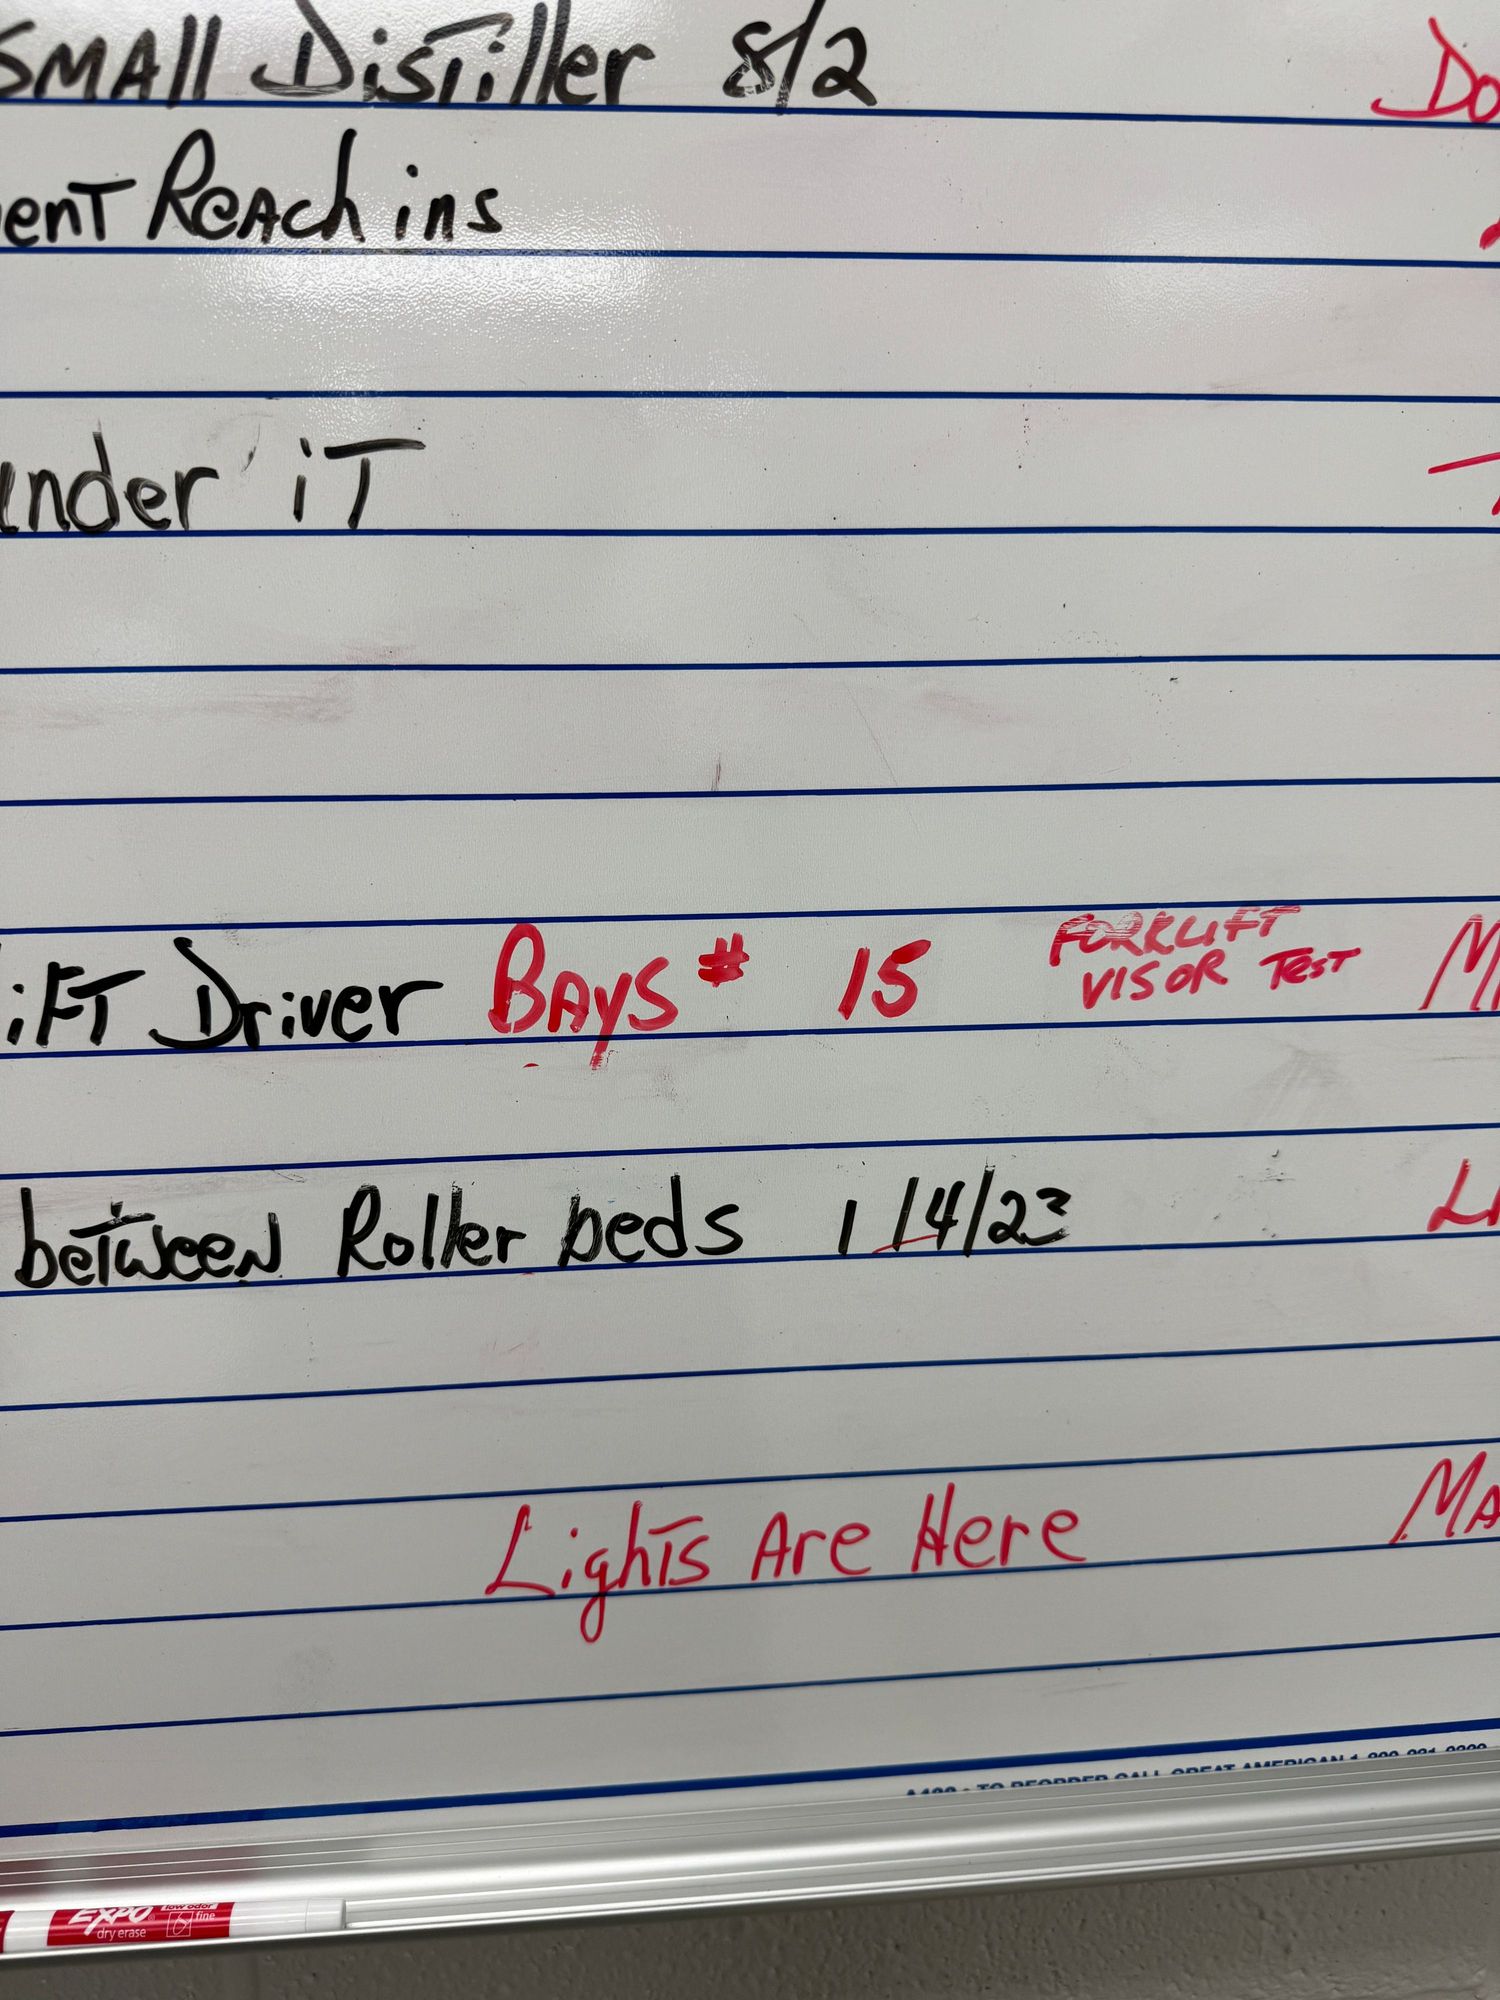 SMAll Distiller 8/2 Do
ent Reach ins
under iT
iFT Driver BAYS # 15 FORKLIFT VISOR TEST M
between Roller beds 1/4/23 Li
Lights Are Here MA
TO REORDER CALL GREAT AMERICAN
EXPO low odor
dry erase fine